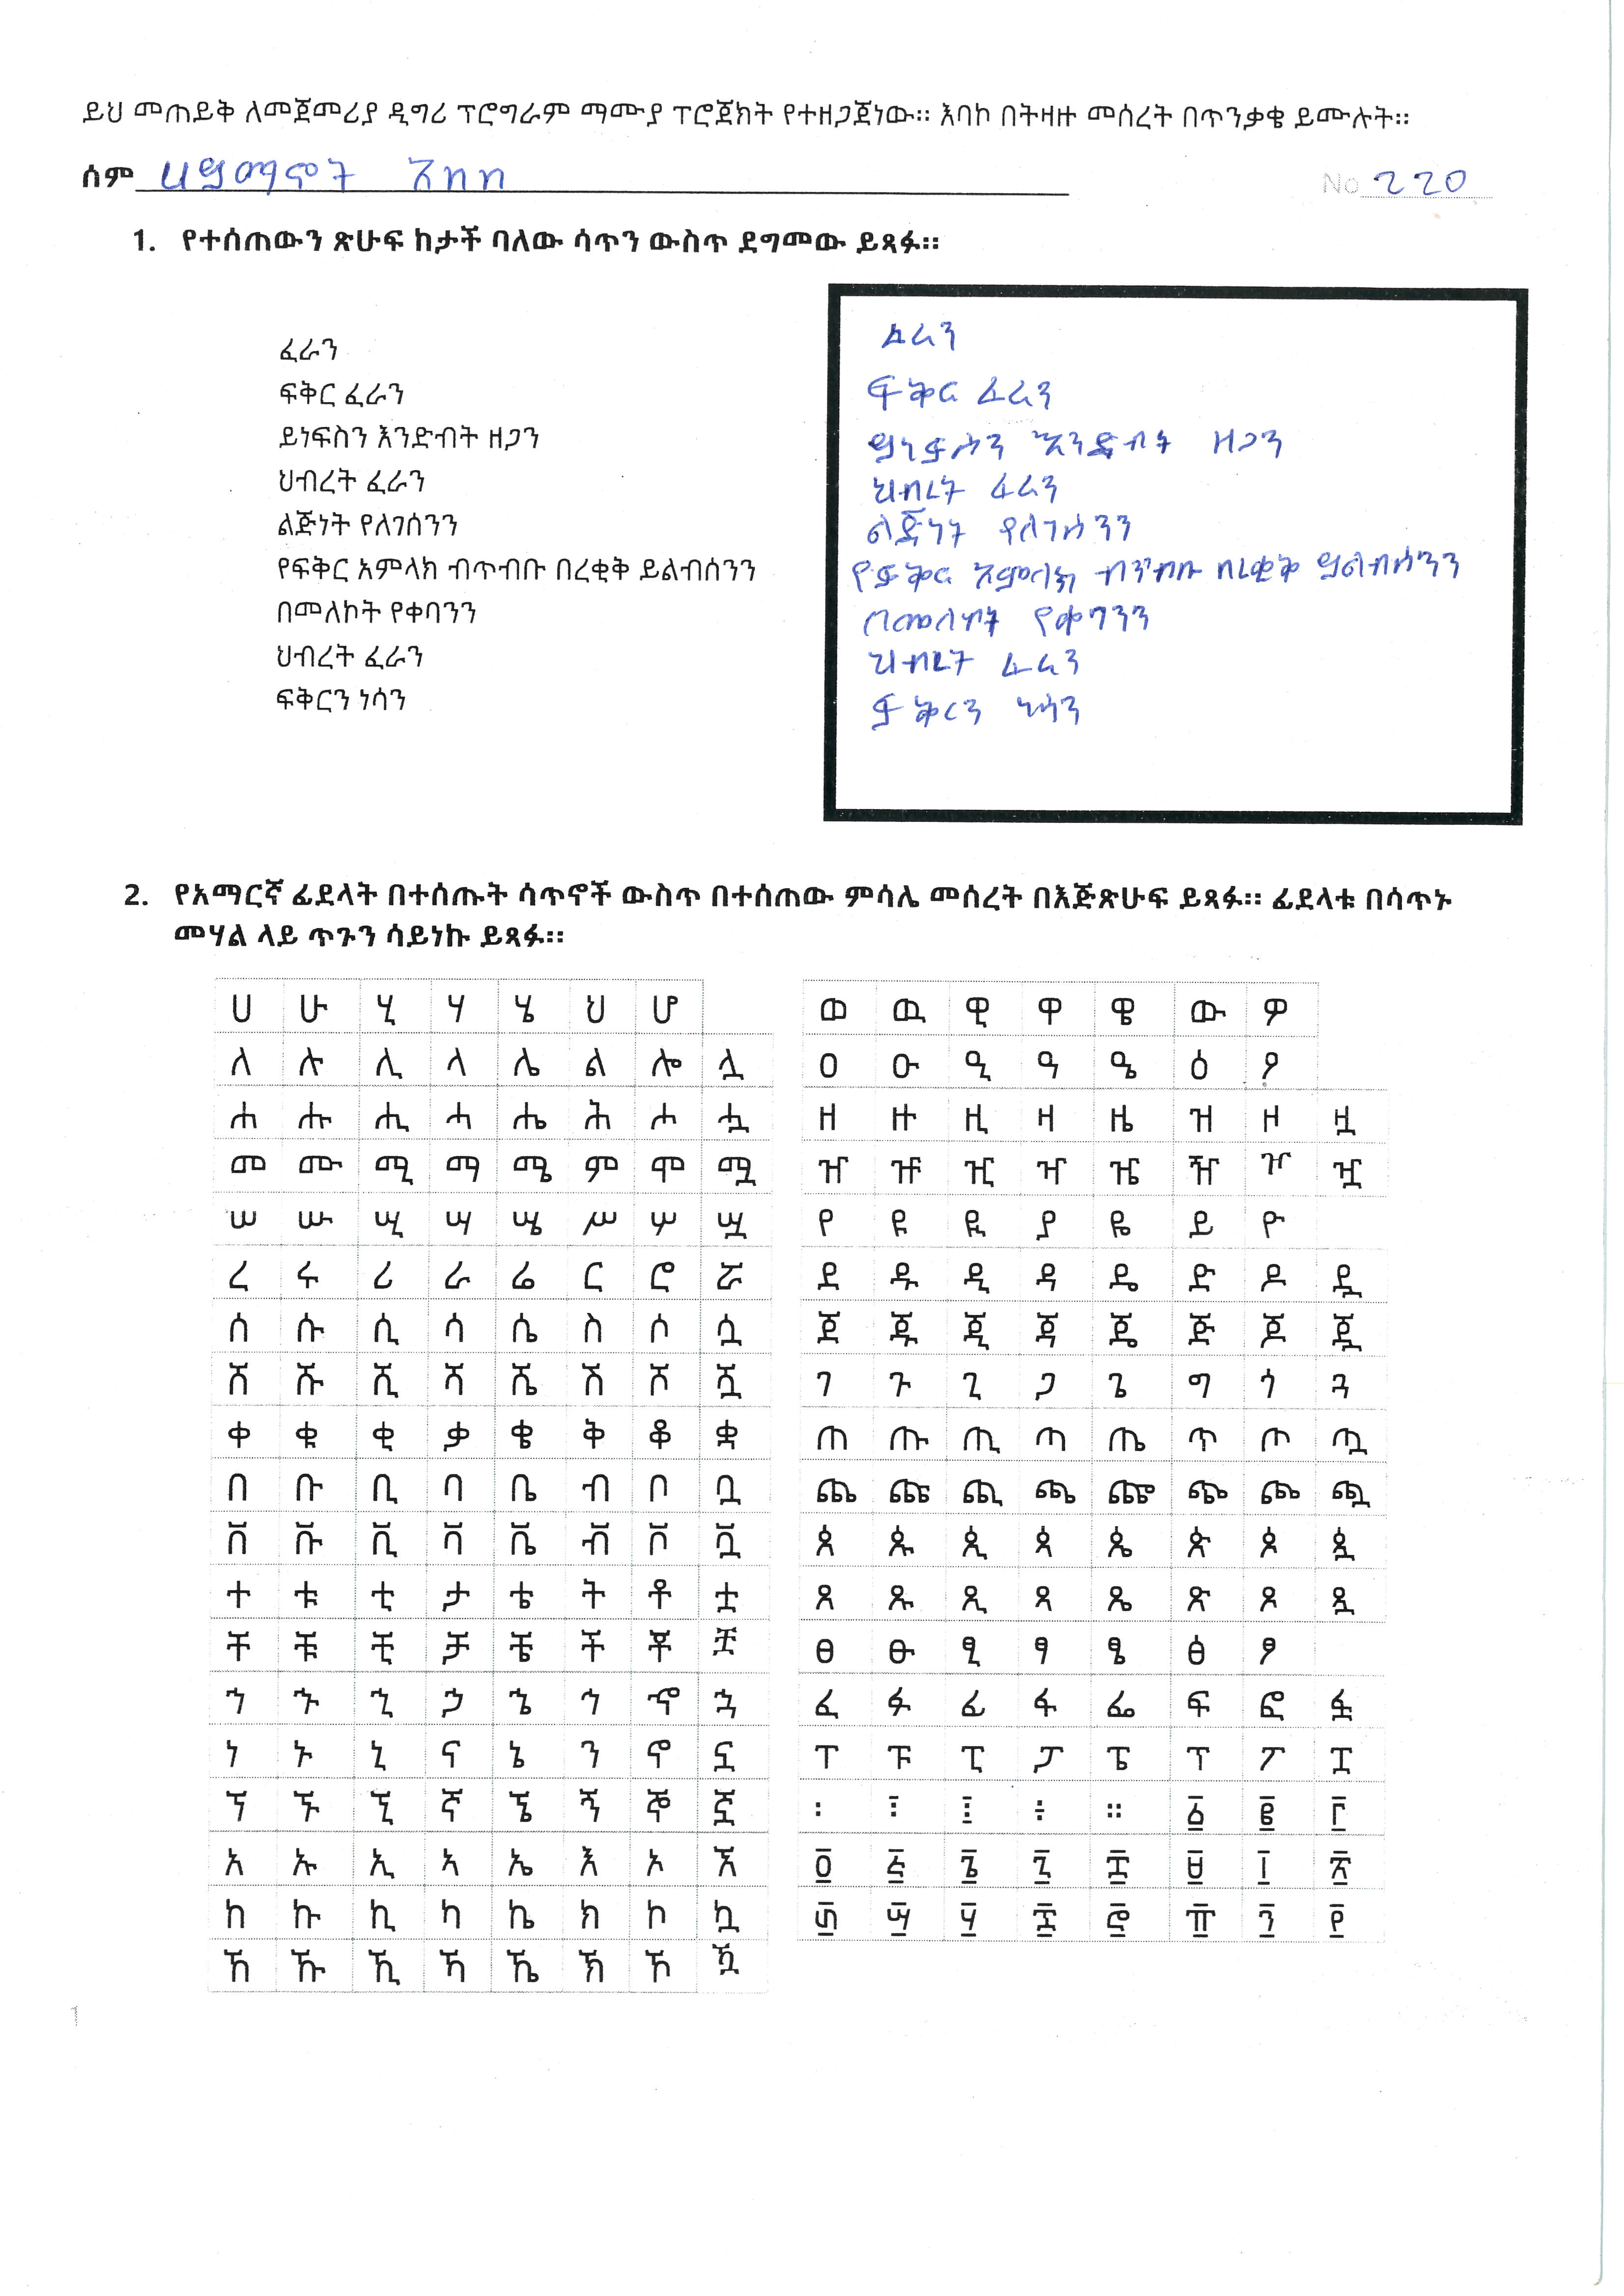 ይህ መጠይቅ ለመጀመሪያ ዲግሪ ፕሮግራም ማሙያ ፕሮጀክት የተዘጋጀነው። እባኮ በትዛዙ መሰረት በጥንቃቄ ይሙሉት።
ሰም ሀይማኖት አበበ No 220
1. የተሰጠውን ጽሁፍ ከታች ባለው ሳጥን ውስጥ ደግመው ይጻፉ።
ፈራን
ፍቅር ፈራን
ይነፍስን እንድብት ዘጋን
ህብረት ፈራን
ልጅነት የለገሰንን
የፍቅር አምላክ ብጥብቡ በረቂቅ ይልብሰንን
በመለኮት የቀባንን
ህብረት ፈራን
ፍቅርን ነሳን
ፈራን
ፍቅር ፈራን
ይነፍስን እንድብት ዘጋን
ህብረት ፈራን
ልጅነት የለገሰንን
የፍቅር አምላክ ብጥብቡ በረቂቅ ይልብሰንን
በመለኮት የቀባንን
ህብረት ፈራን
ፍቅርን ነሳን
2. የአማርኛ ፊደላት በተሰጡት ሳጥኖች ውስጥ በተሰጠው ምሳሌ መሰረት በእጅጽሁፍ ይጻፉ። ፊደላቱ በሳጥኑ
መሃል ላይ ጥጉን ሳይነኩ ይጻፉ።
ሀ ሁ ሂ ሃ ሄ ህ ሆ
ለ ሉ ሊ ላ ሌ ል ሎ ሏ
ሐ ሑ ሒ ሓ ሔ ሕ ሖ ሗ
መ ሙ ሚ ማ ሜ ም ሞ ሟ
ሠ ሡ ሢ ሣ ሤ ሥ ሦ ሧ
ረ ሩ ሪ ራ ሬ ር ሮ ሯ
ሰ ሱ ሲ ሳ ሴ ስ ሶ ሷ
ሸ ሹ ሺ ሻ ሼ ሽ ሾ ሿ
ቀ ቁ ቂ ቃ ቄ ቅ ቆ ቋ
በ ቡ ቢ ባ ቤ ብ ቦ ቧ
ቨ ቩ ቪ ቫ ቬ ቭ ቮ ቯ
ተ ቱ ቲ ታ ቴ ት ቶ ቷ
ቸ ቹ ቺ ቻ ቼ ች ቾ ቿ
ኀ ኁ ኂ ኃ ኄ ኅ ኆ ኋ
ነ ኑ ኒ ና ኔ ን ኖ ኗ
ኘ ኙ ኚ ኛ ኜ ኝ ኞ ኟ
አ ኡ ኢ ኣ ኤ እ ኦ ኧ
ከ ኩ ኪ ካ ኬ ክ ኮ ኳ
ኸ ኹ ኺ ኻ ኼ ኽ ኾ ዃ
ወ ዉ ዊ ዋ ዌ ው ዎ
ዐ ዑ ዒ ዓ ዔ ዕ ዖ
ዘ ዙ ዚ ዛ ዜ ዝ ዞ ዟ
ዠ ዡ ዢ ዣ ዤ ዥ ዦ ዧ
የ ዩ ዪ ያ ዬ ይ ዮ
ደ ዱ ዲ ዳ ዴ ድ ዶ ዷ
ጀ ጁ ጂ ጃ ጄ ጅ ጆ ጇ
ገ ጉ ጊ ጋ ጌ ግ ጎ ጓ
ጠ ጡ ጢ ጣ ጤ ጥ ጦ ጧ
ጨ ጩ ጪ ጫ ጬ ጭ ጮ ጯ
ጰ ጱ ጲ ጳ ጴ ጵ ጶ ጷ
ጸ ጹ ጺ ጻ ጼ ጽ ጾ ጿ
ፀ ፁ ፂ ፃ ፄ ፅ ፆ
ፈ ፉ ፊ ፋ ፌ ፍ ፎ ፏ
ፐ ፑ ፒ ፓ ፔ ፕ ፖ ፗ
፡ ፧ ፨ ፥ ። ፩ ፪ ፫
፬ ፭ ፮ ፯ ፰ ፱ ፲ ፳
፴ ፵ ፶ ፷ ፸ ፹ ፺ ፻
1